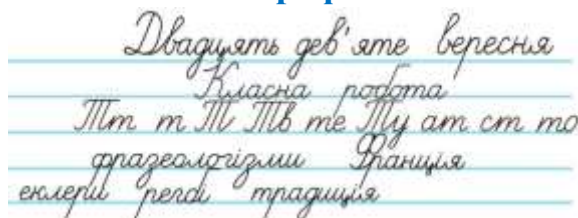 Двадцять дев'яте вересня
Класна робота
Тт т Т Тв те Ту ат ст то
фразеологізми Франція
еклери регбі традиція